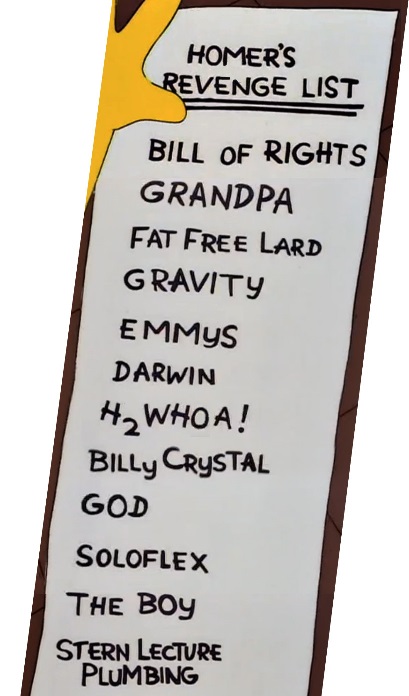 HOMER'S
REVENGE LIST
BILL OF RIGHTS
GRANDPA
FAT FREE LARD
GRAVITY
EMMYS
DARWIN
H₂WHOA!
BILLY CRYSTAL
GOD
SOLOFLEX
THE BOY
STERN LECTURE
PLUMBING